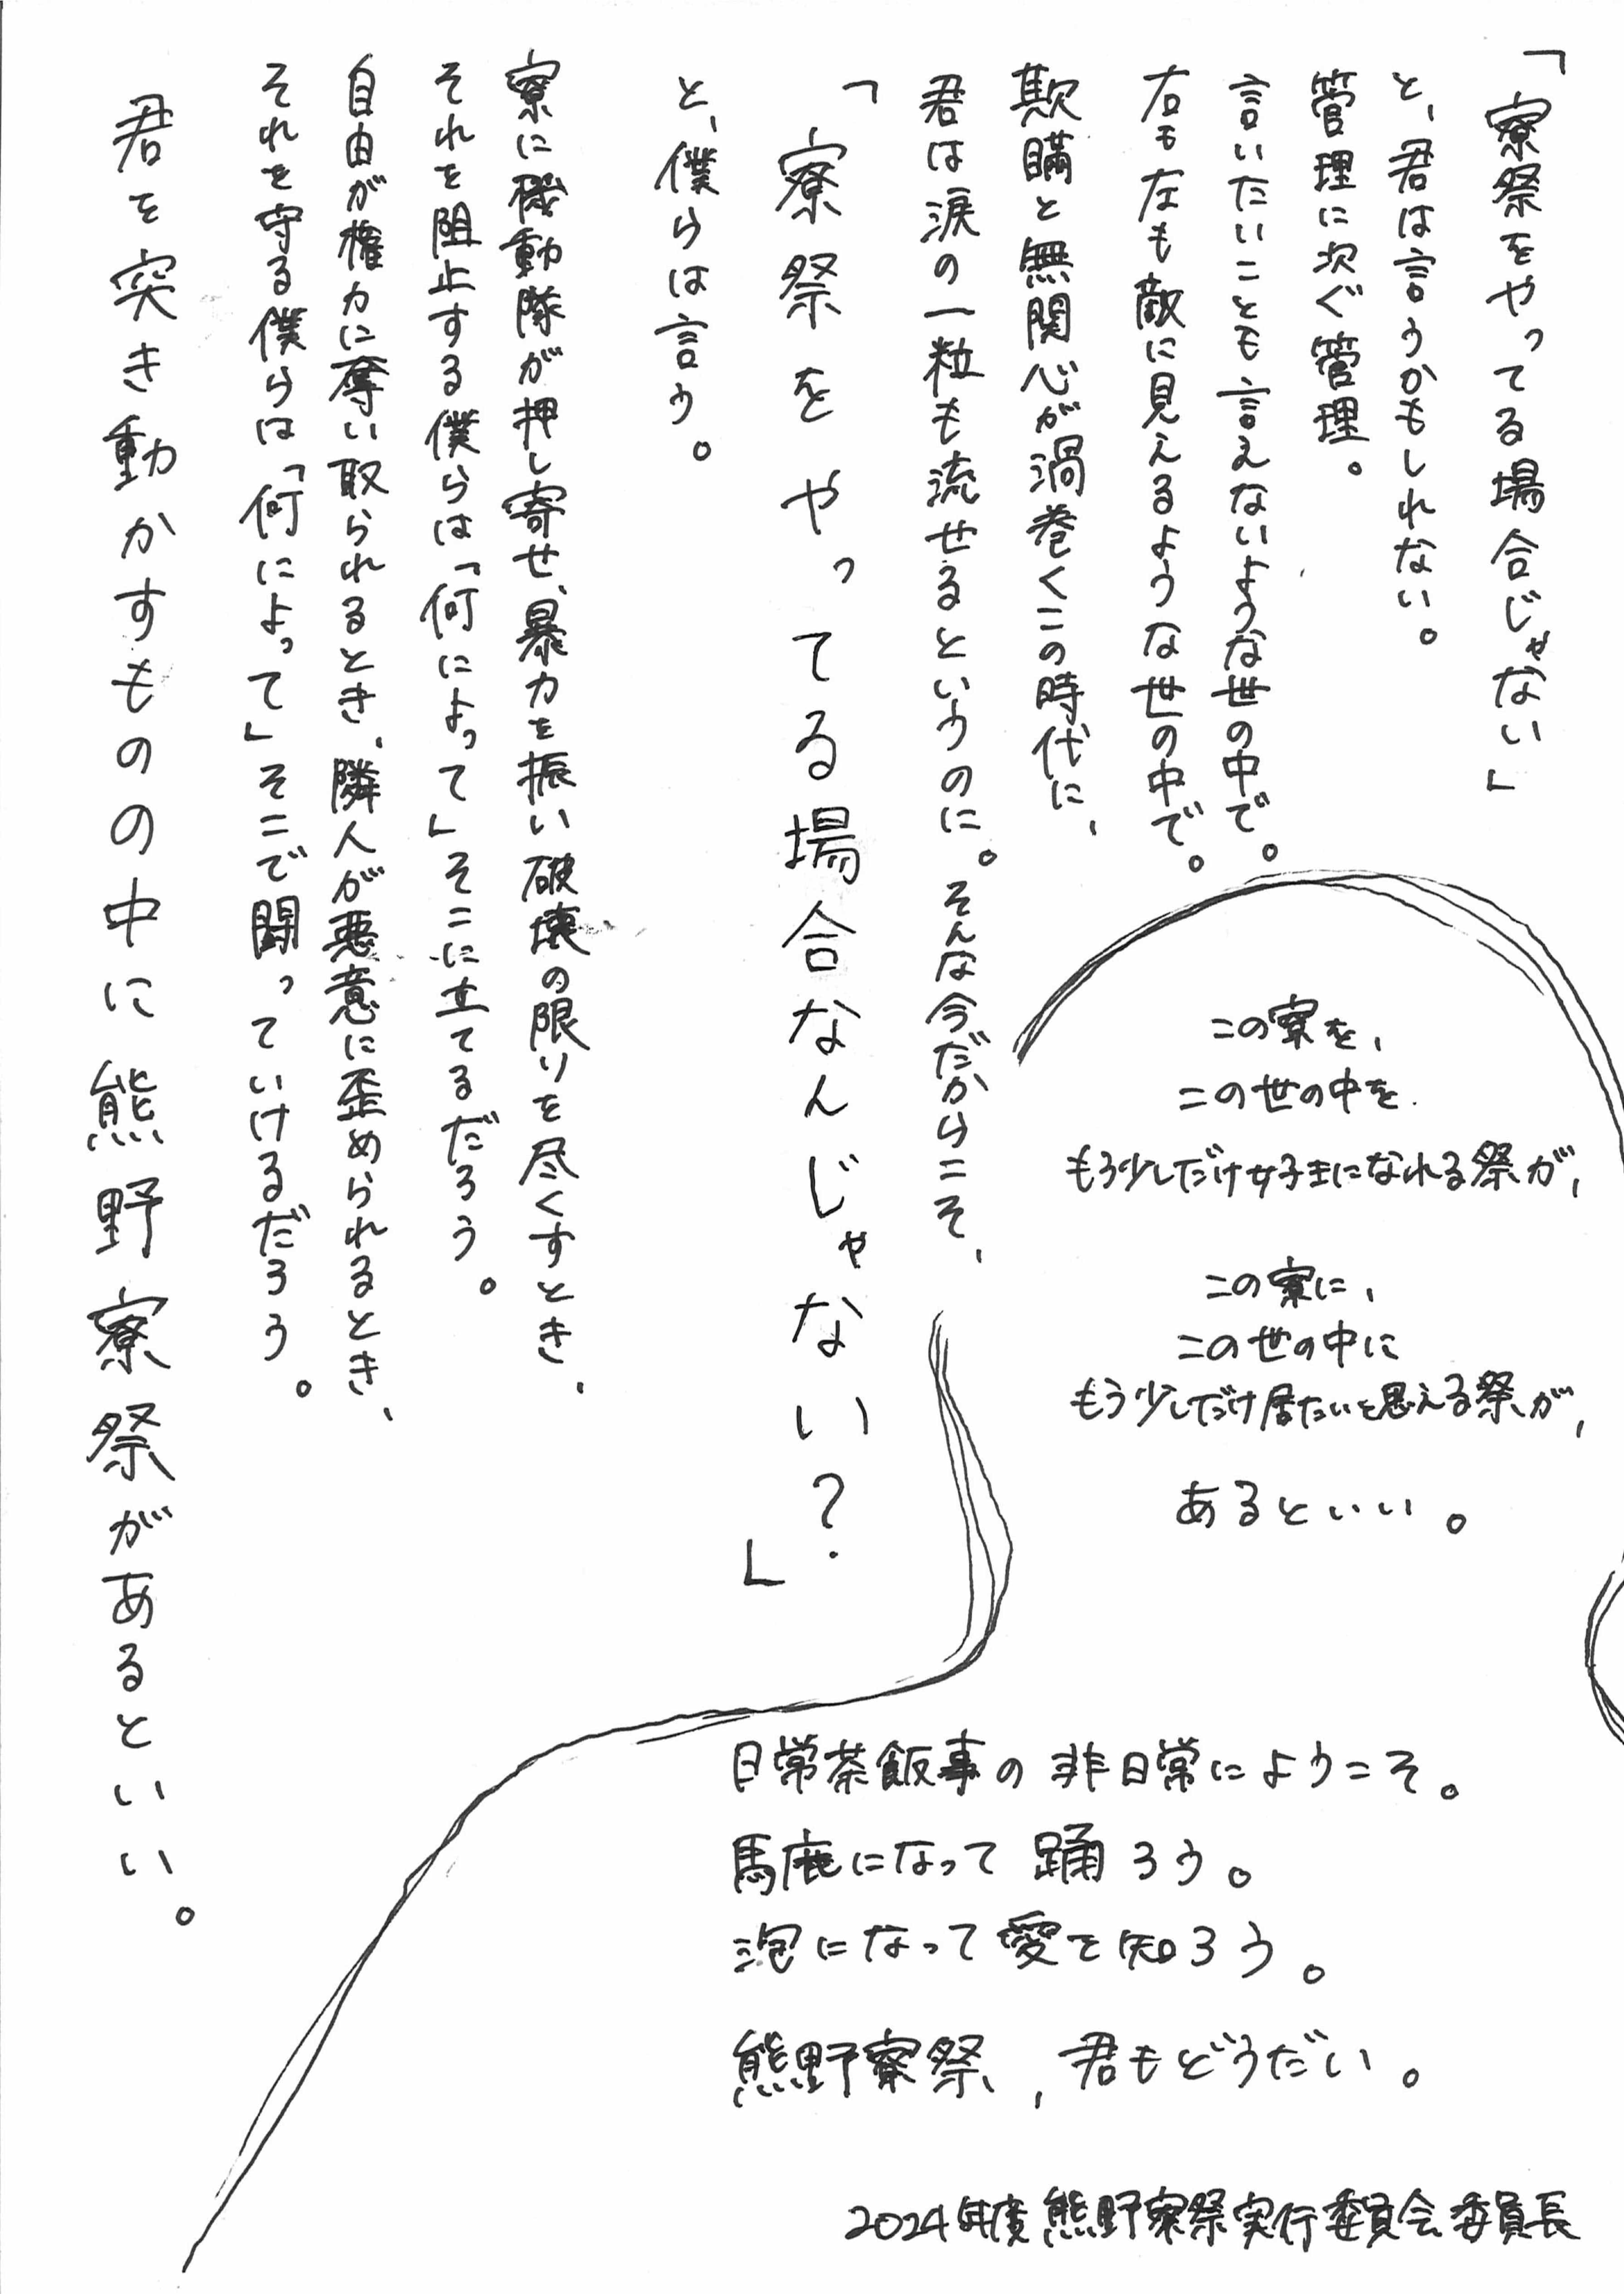 「寮祭をやってる場合じゃない」
と、君は言うかもしれない。
管理に次ぐ管理。
言いたいことも言えないような世の中で。
右も左も敵に見えるような世の中で。
欺瞞と無関心が渦巻くこの時代に、
君は涙の一粒も流せるというのに。そんな今だからこそ、
「寮祭をやってる場合なんじゃない？」
と、僕らは言う。
寮に機動隊が押し寄せ、暴力を振い破壊の限りを尽くすとき、
それを阻止する僕らは「何によって」そこに立てるだろう。
自由が権力に奪い取られるとき、隣人が悪意に歪められるとき、
それを守る僕らは「何によって」そこで闘っていけるだろう。
君を突き動かすものの中に熊野寮祭があるといい。
この寮を、
この世の中を
もう少しだけ好きになれる祭が、
この寮に、
この世の中に
もう少しだけ居たいと思える祭が、
あるといい。
日常茶飯事の非日常にようこそ。
馬鹿になって踊ろう。
泡になって愛を知ろう。
熊野寮祭、君もどうだい。
2024年度熊野寮祭実行委員会委員長